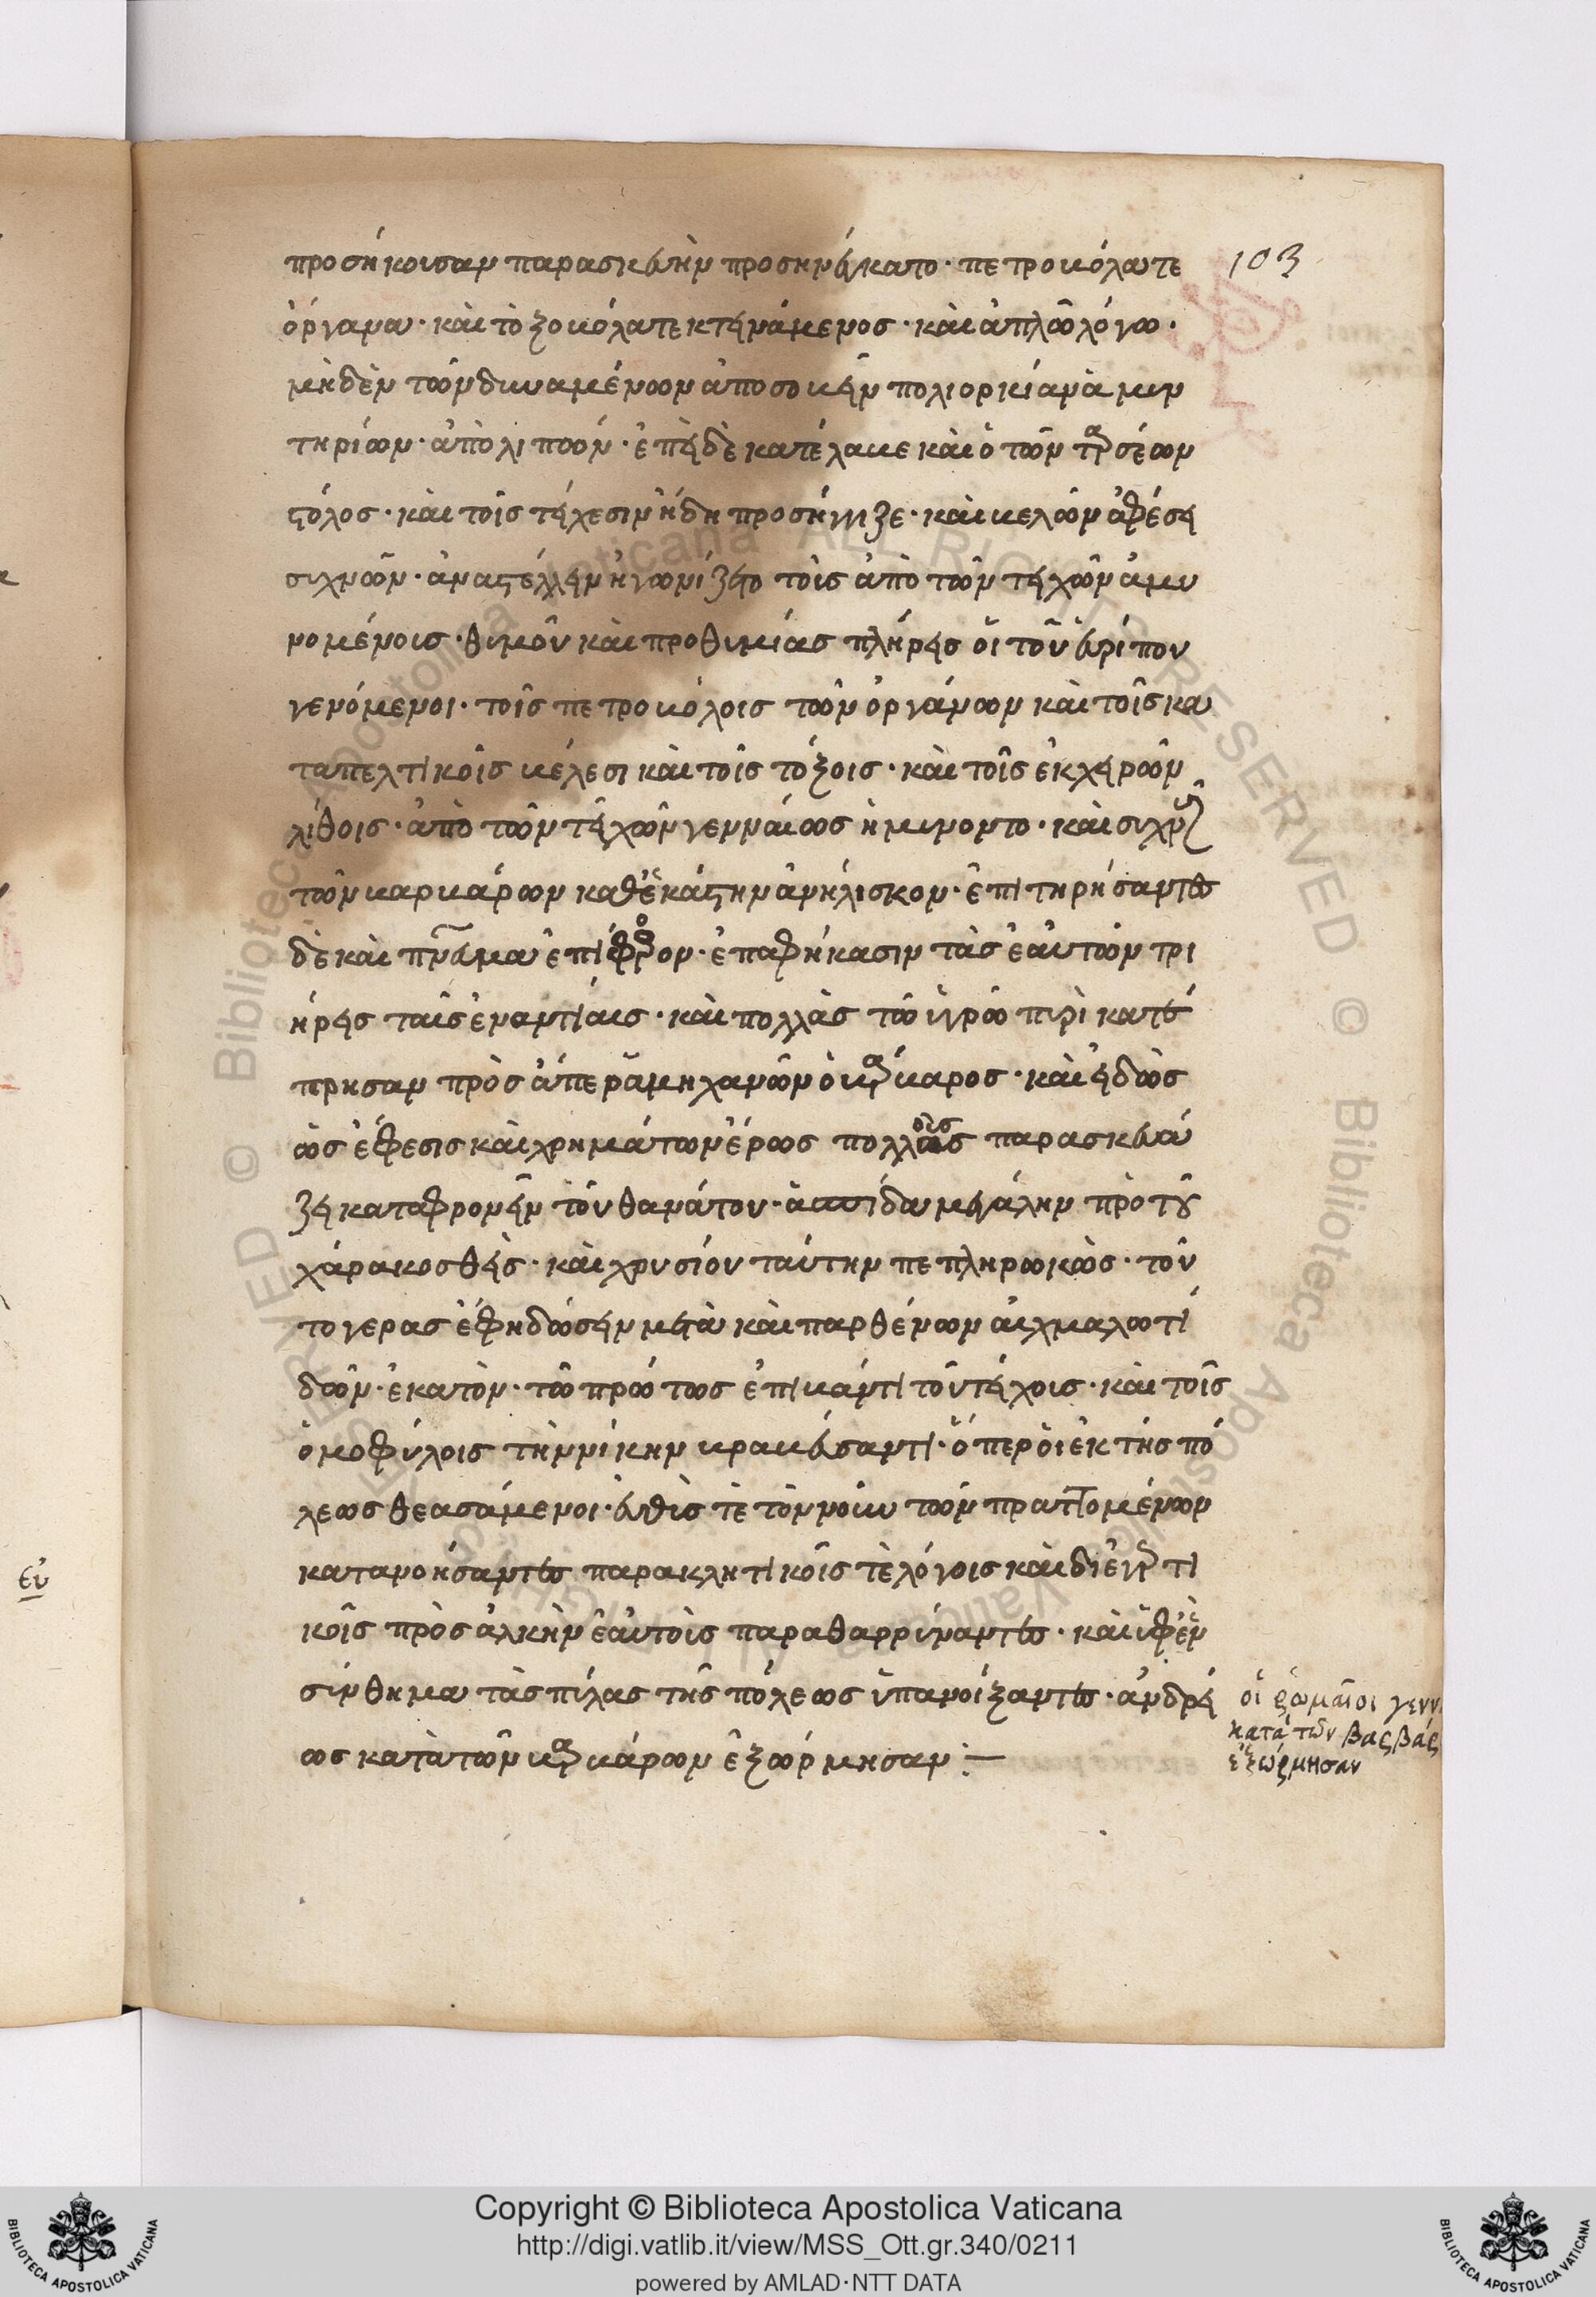 προσήκουσαν παρασκευὴν προσηνέγκατο· πετροβόλα τε 103
ὄργανα· καὶ τοξοβόλα τεκτηνάμενος· καὶ ἁπλῶ λόγω·
μὴδὲν τῶν δυναμένων ἀποσοβεῖν πολιορκίαν ἀμυν
τηρίων· ἀπολιπών· ἐπεὶ δὲ κατέλαβε καὶ ὁ τῶν ταρσέων
στόλος· καὶ τοῖς τείχεσιν ἤδη προσήγγιζε· καὶ βελῶν ἀφέσει
συχνῶν· ἀναστέλλειν ἠγωνίζετο τοὶς ἀπὸ τῶν τειχῶν ἀμυ
νομένοις· θυμοῦ καὶ προθυμίας πλήρεις οἱ τοῦ εὐρίπου
γενόμενοι· τοῖς πετροβόλοις τῶν ὀργάνων καὶ τοῖς κα
ταπελτικοῖς βέλεσι καὶ τοῖς τόξοις· καὶ τοῖς ἐκ χειρῶν
λίθοις· ἀπὸ τῶν τειχῶν γενναίως ἠμύνοντο· καὶ συχνοὺς
τῶν βαρβάρων καθ' ἑκάστην ἀνήλισκον· ἐπιτηρήσαντες
δὲ καὶ πνεῦμα ἐπίφορον· ἐπαφήκασιν τὰς ἑαυτῶν τρι
ήρεις ταῖς ἐναντίαις· καὶ πολλὰς τῶ ὑγρῶ πυρὶ κατέ
πρησαν πρὸς ἅπερ ἀμηχανῶν ὁ βάρβαρος· καὶ εἰδὼς
ὡς ἔφεσις καὶ χρημάτων ἔρως πολλοὺς παρασκευά
ζει καταφρονεῖν τοῦ θανάτου· ἀσπίδα μεγάλην πρὸ τοῦ
χάρακος θεὶς· καὶ χρυσίου ταύτην πεπληρωκὼς· τοῦ
το γερας ἐφη δώσειν μετὰ καὶ παρθένων αἰχμαλωτί
δων· ἑκατὸν· τῶ πρώτως ἐπιβάντι τοῦ τείχους· καὶ τοῖς
ὁμοφύλοις τὴν νίκην βραβεύσαντι· ὅπερ οἱ ἐκ τῆς πό
λεως θεασάμενοι· εὐθὺς τὲ τὸν νοῦν τῶν πραττομένων
κατανοήσαντες παρακλητικοῖς τὲ λόγοις καὶ διεγερτι
κοῖς πρὸς ἀλκὴν ἑαυτοὺς παραθαρρύναντες· καὶ ὑφ' ἓν
σύνθημα τὰς πύλας τῆς πόλεως ὑπανοίξαντες· ἀνδρεί
ως κατὰ τῶν βαρβάρων ἐξώρμησαν :—
οἱ ῥωμαῖοι γενν
κατὰ τῶν βαρβάρ
ἐξώρμησαν
εὐ
Copyright © Biblioteca Apostolica Vaticana
http://digi.vatlib.it/view/MSS_Ott.gr.340/0211
powered by AMLAD·NTT DATA
BIBLIOTECA APOSTOLICA VATICANA
BIBLIOTECA APOSTOLICA VATICANA